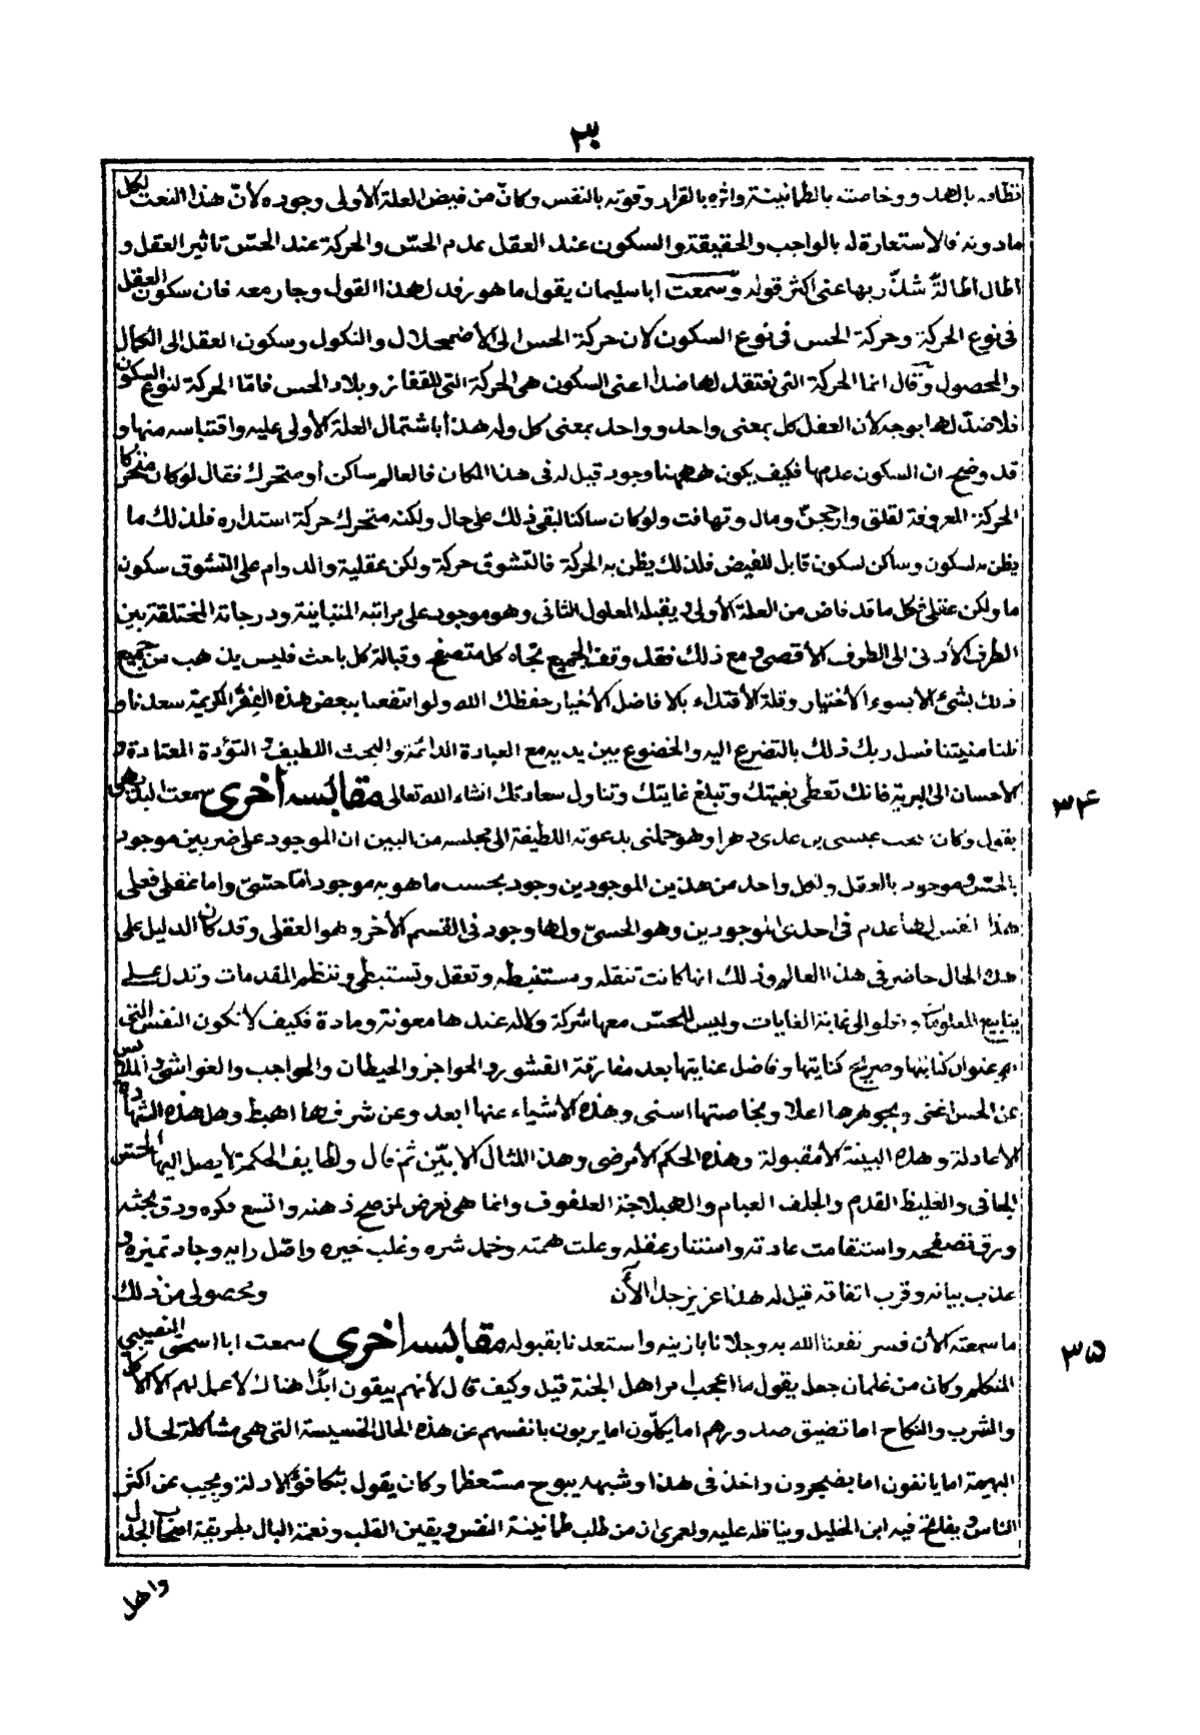 ٣٠
نظامه بالهدو وخاصته بالطمانينة واثره بالقرار وقوته بالنفس وكان من فيض العلة الأولى وجوده لانّ هذا النعت لكل
مادونه فالاستعارة له بالواجب والحقيقة والسكون عند العقل عدم الحسّ والحركة عند الحسّ تاثير العقل و
اطال اطالةً شذّ ربها عنى اكثر قوله وسمعت اباسليمان يقول ما هو رفد لهذا القول وجار معه فان سكون العقل
فى نوع الحركة وحركة الحس فى نوع السكون لان حركة الحس الى الاضمحلال والنكول وسكون العقل الى الكمال
والمحصول وقال انما الحركة التى نفتقد لها ضدا اعنى السكون هى الحركة التى للقفاز وبلاد الحس فامّا الحركة لنوع السكون
فلاضدّ لها بوجه لأن العقل كل بمعنى واحد وواحد بمعنى كل وله هذا باشتمال العلة الأولى عليه واقتباسه منها و
قد وضح ان السكون عدمها فكيف يكون هههنا وجود قيل له فى هذا المكان فالعالم ساكن أو متحرك فقال لو كان متحركا
الحركة المعروفة لقلق وارجحنّ ومال وتهافت ولو كان ساكنا لبقى ذلك على حال ولكنه متحرك حركة استداره فلذلك ما
يظن به لسكون وساكن لسكون قابل للفيض فلذلك يظن به الحركة فالتشوق حركة ولكن عقلية والدوام على التشوق سكون
ما ولكن عقلى فكل ما قد فاض من العلة الأولى ويقبله المعلول الثانى وهو موجود على مراتبه المتباينة ودرجاته المختلفة بين
الطرف الأدنى الى الطرف الاقصى ومع ذلك فقد وقف الجميع تجاه كل متصفح وقبالة كل باحث فليس يذهب من جميع
ذلك بشئ الا بسوء الأختيار وقلة الأقتداء بالافاضل الأخيار حفظك الله ولو انتفعنا ببعض هذه الفقر الكريمة سعدنا و
نلنا منيتنا فسل ربك ذلك بالتضرع اليه والخضوع بين يديه مع العبادة الدائمة والبحث اللطيف والتؤدة المعتادة و
الأحسان الى البرية فانك تعطى بغيتك وتبلغ غايتك وتناول سعادتك انشاء الله تعالى مقابسه أخرى سمعت البديهى
٣٤
يقول وكان صحب عيسى بن عدى دهرا وهو حملنى بدعوته اللطيفة الى مجلسه من البين ان الموجود على ضربين موجود
بالحسّ وموجود بالعقل ولكل واحد من هذين الموجودين وجود بحسب ما هو به موجود امّا حسّىّ واما عقلى فعلى
هذا النفس لها عدم فى احدى الموجودين وهو الحسىّ ولها وجود فى القسم الأخر وهو العقلى وقد كان الدليل على
هذه الحال حاضر فى هذا العالم وذلك انها كانت تنقله ومستفيطه وتعقل وتستنبطى وتنظم المقدمات وتدل على
ينابيع المعلومات وتخلو الى غاية الغايات وليس للحسّ معها شركة ولاله عندها معونة ومادة فكيف لا تكون النفس التى
عنوان كنايتها وصريح كنايتها وفاضل عنايتها بعد مفارقة القشور والحواجز والحيطان والحواجب والغواشى والملابس
عن الحس اغنى وبجوهرها اعلا وبخاصتها اسنى وهذه الأشياء عنها ابعد وعن شرفها اهبط وهل هذه الشهادة
الا عادلة وهذه البينة الأ مقبولة وهذه الحكم الأ مرضى وهذا المثال الا بيّن ثم قال ولطايف الحكمة لا يصل اليها الحسّ
الجافى والغليظ القدم والجلف العبام والهبلاجة العلفوف وانما هى تعرض لمن صح ذهنه واتسع فكره ودق بحثه
ورق تصفحه واستقامت عادته واستنار عقله وعلت همته وخمد شره وغلب خيره واصّل رايه وجاد تميزه و
عذب بيانه وقرب اتفاقه قيل له هذا عزيز جدا الآن ومحصولى من ذلك
ما سمعته الأن فسر نفعنا الله به وجلانا بازينه واستعدنا بقبوله مقابسه اخرى سمعت ابا اسحق النصيبى
٣٥
المتكلم وكان من غلمان جعل يقول ما اعجب مر اهل الجنة قيل وكيف قال لأنهم يبقون ابدًا هناك لا عمل لهم الا الأكل
والشرب والنكاح اما تضيق صدورهم اما يكلّون اما يربون بانفسهم عن هذه الحال الخسيسة التى هى مشاكلة لحال
البهيمة اما يانفون اما يضجرون واخذ فى هذا وشبهه يبوح مستعظما وكان يقول بتكافؤ الادلة ويجيب عن اكثر
الناس ويفلخ فيه ابن الخليل ويناقله عليه ولعمرى ان من طلب طمانينة النفس ويقين القلب ونعمة البال بطريقة اصحاب الجدل
واهل